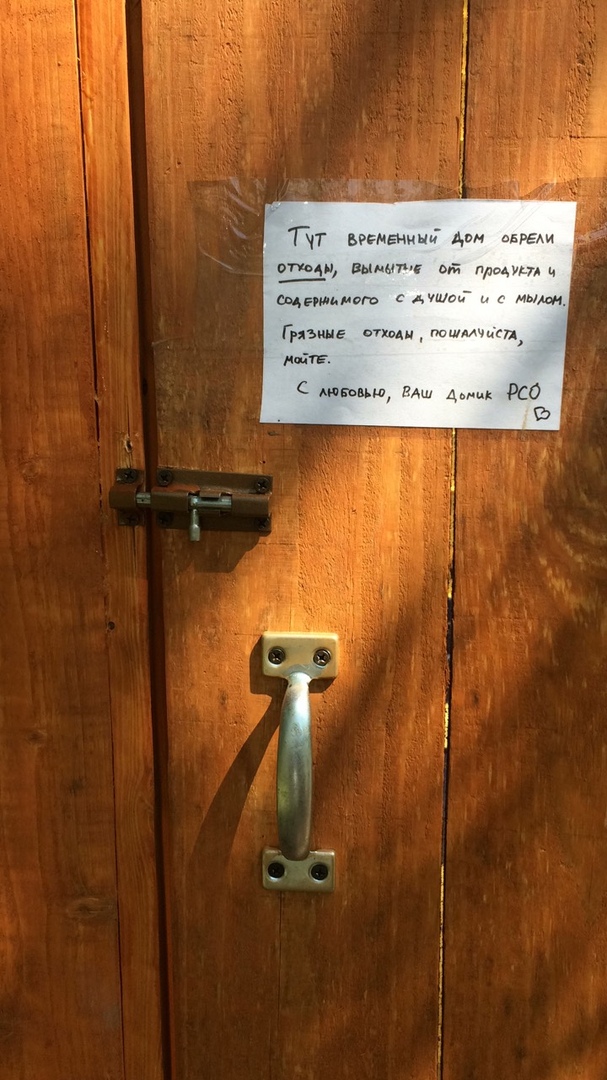 Тут временный дом обрели
отходы, вымытые от продукта и
содержимого с душой и с мылом.
Грязные отходы, пожалуйста,
мойте.
С любовью, ваш домик РСО